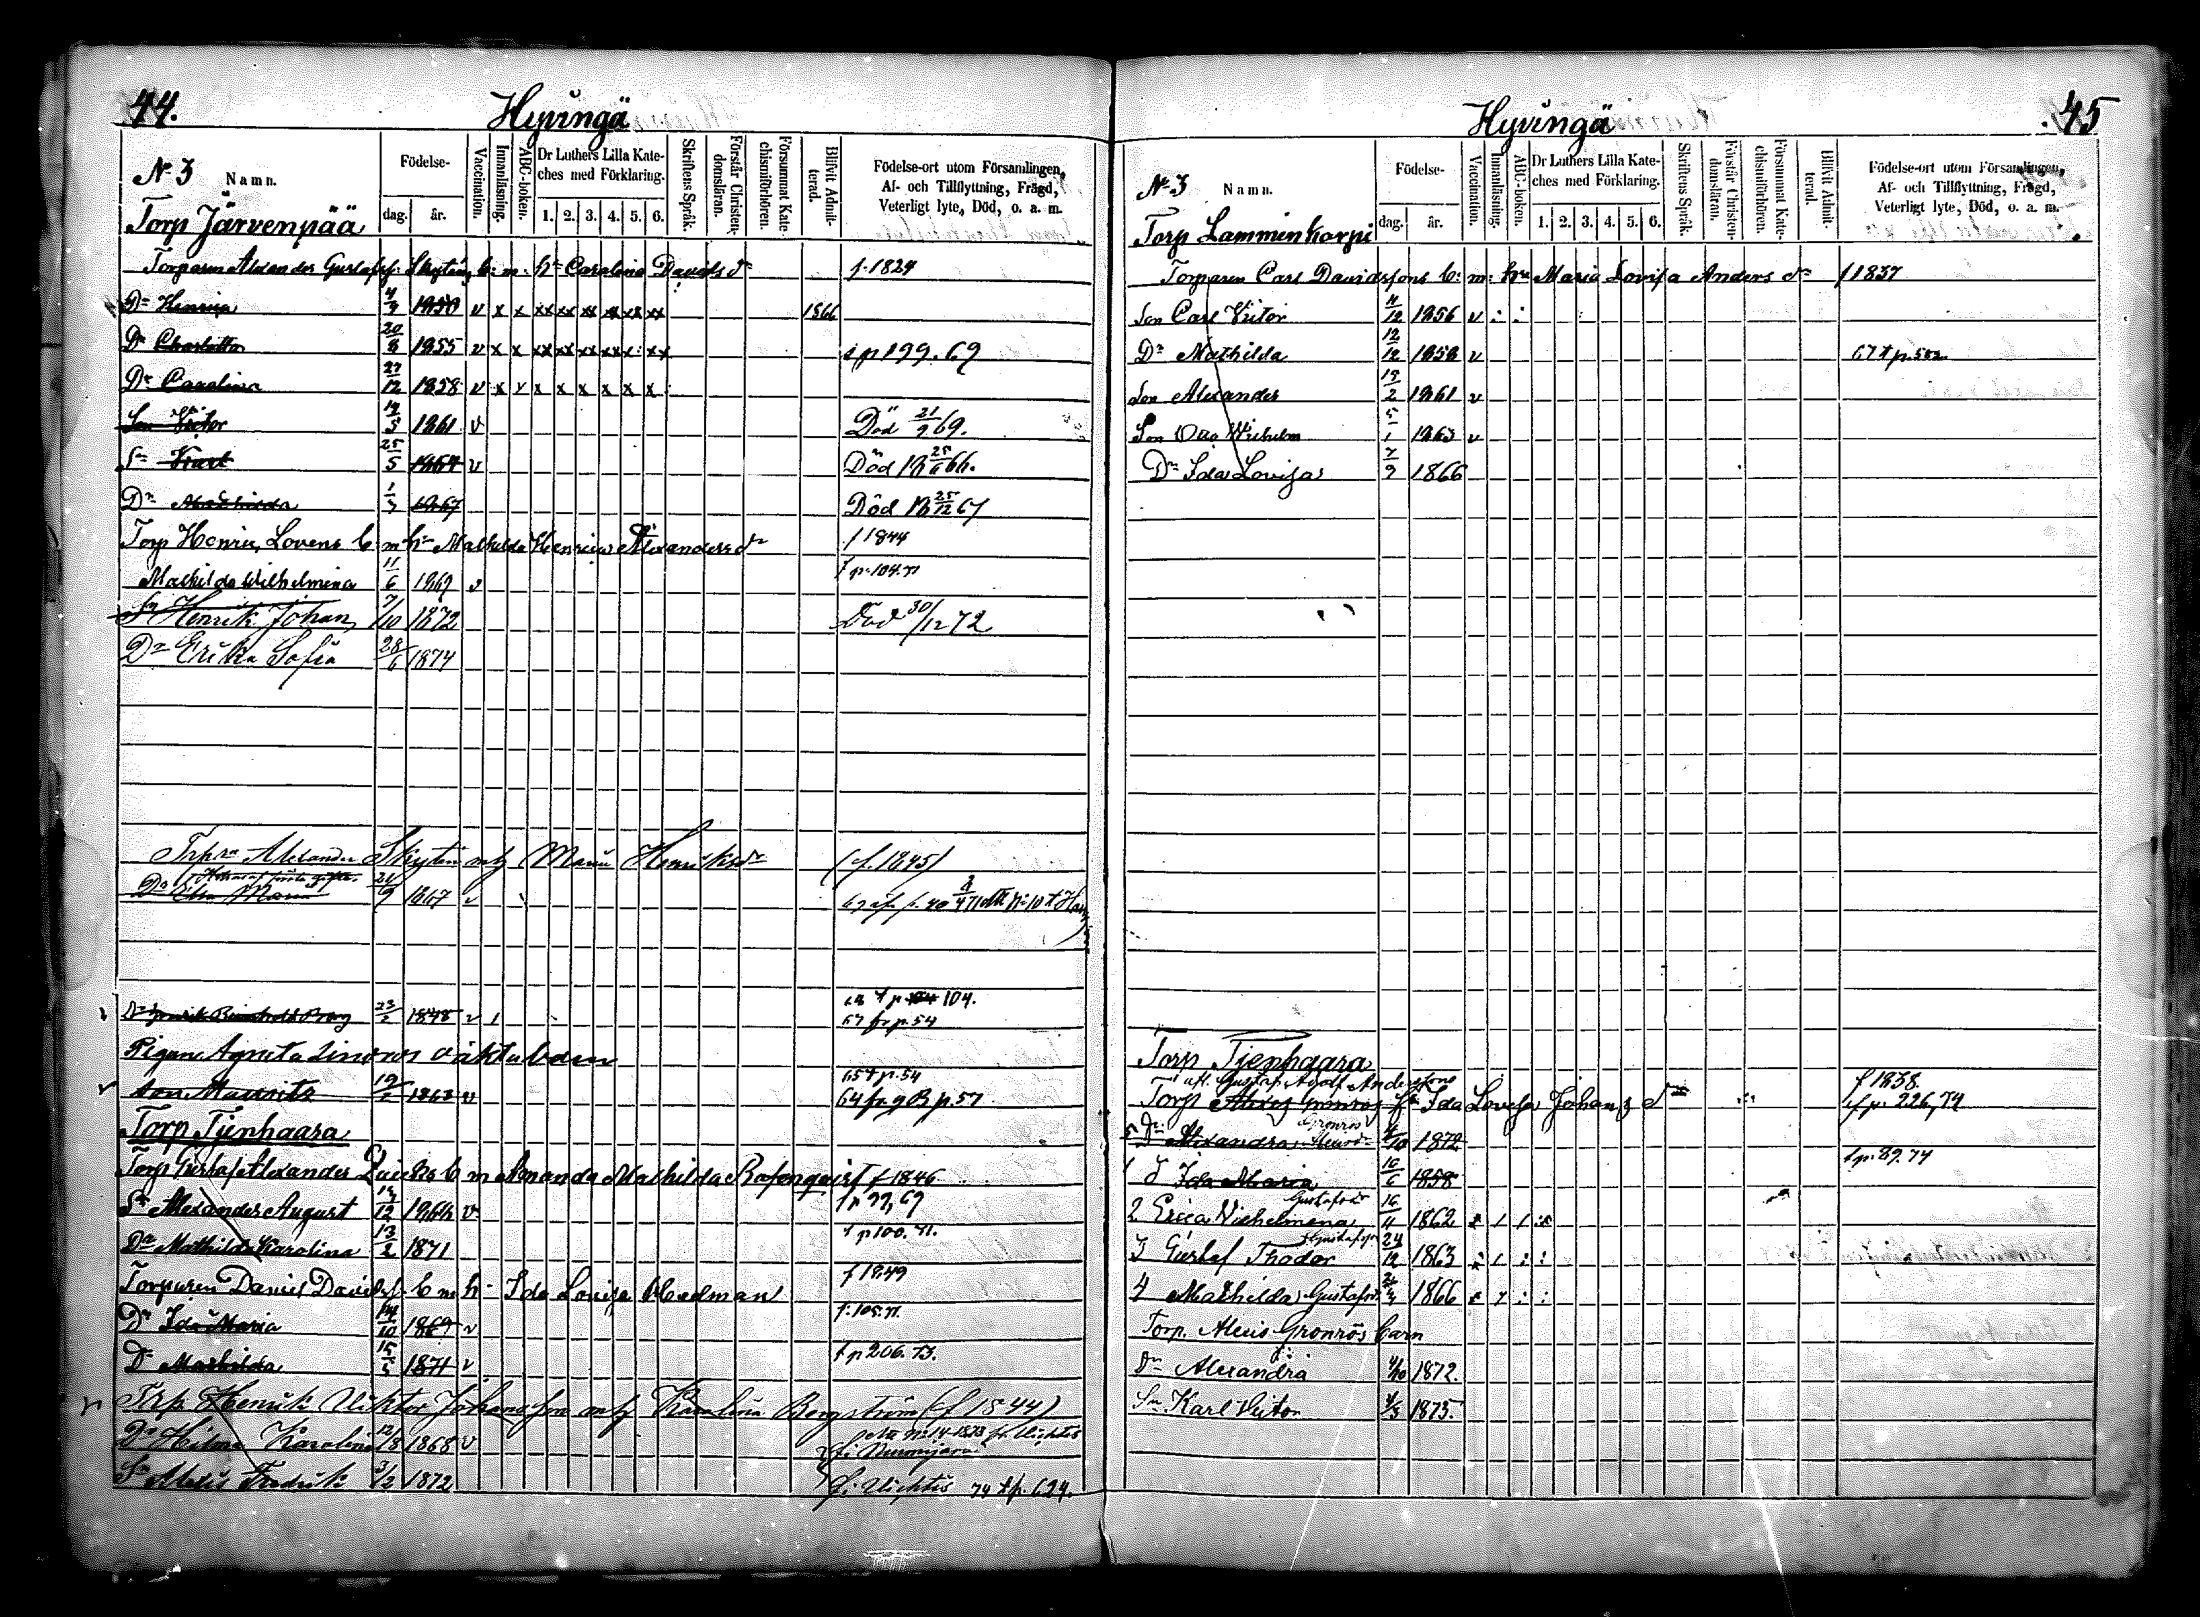 44.
Hyvingä
N:o 3
Namn.
Födelse-
dag.
år.
Vaccination.
Innanläsning.
ABC-boken.
Dr Luthers Lilla Kate-
ches med Förklaring.
1. 2. 3. 4. 5. 6.
Skriftens Språk.
Förstår Christen-
domsläran.
Försummat Kate-
chismiförhören.
Blifvit Admit-
terad.
Födelse-ort utom Församlingen,
Af- och Tillflyttning, Frägd,
Veterligt lyte, Död, o. a. m.
Torp Järvenpää
Torparen Alexander Gustafsf: Skyttens b: m: hu Carolina Davids dr f. 1824
Dr Henrica 4/9 1850 v x x xx xx xx xx xx xx 1866
Dr Charlotta 20/8 1855 v x x xx xx xx xx x: xx t p 199. 69
Dr Carolina 27/12 1858 v x v x x x x x x
Son Victor 19/5 1861 v Död 21/9 69.
Sn Karl 25/5 1864 v Död 66.
Dr Mathilda 1/3 1867 Död 25/12 67
Torp Henric Lovens b: m hu Mathilda Henrica Alexandersdr f 1844
Mathilda Wilhelmina 11/6 1869 v t p. 104. 71
Sn Henrik Johan 7/10 1872 Död 30/12 72
Dr Erika Sofia 28/6 1874
Trpn Alexander Skyttens mh Maria Henriksdr (f. 1845)
Dr Elsa Maria 21/9 1867 v
Henrik Reinhold Borg 23/2 1848 v 1 68 t p 104.
67 fr p. 54
Pigan Agneta Linoros oäkta barn
65 t p. 54
Son Maurits 19/2 1863 v 64 fr g B p. 57
Torp Tjenhaara
Torp Gustaf Alexander b m Amanda Mathilda Rosenqvist f 1846
Sn Alexander August 13/12 1864 v t p 99, 69
Dr Mathilda Karolina 13/2 1871 t p 100. 71.
Torparen Daniel Davidsf. b m h: Ida Lovisa Hedman f 1849
Dr Ida Maria 14/10 1869 v t. 105. 71.
Dr Mathilda 15/5 1871 v t p 206. 73.
Trp. Henrik Viktor Johansson mh Karolina Bergström (f 1844)
Dr Hilma Karolina 12/8 1868 v att N:o 14 1873 fr Vichtis
f: Nurmijärvi
Sn Alexis Fredrik 3/2 1872 f: Vichtis 74 t p. 624.
45
Hyvingä
N:o 3
Namn.
Födelse-
dag.
år.
Vaccination.
Innanläsning.
ABC-boken.
Dr Luthers Lilla Kate-
ches med Förklaring.
1. 2. 3. 4. 5. 6.
Skriftens Språk.
Förstår Christen-
domsläran.
Försummat Kate-
chismiförhören.
Blifvit Admit-
terad.
Födelse-ort utom Församlingen,
Af- och Tillflyttning, Frägd,
Veterligt lyte, Död, o. a. m.
Torp Lamminkorpi
Torparen Carl Davidssons b: m: hu Maria Lovisa Anders dr f 1837
Son Carl Victor 11/12 1856 v : :
Dr Mathilda 12/12 1858 v 67 t p. 582
Son Alexander 19/2 1861 v
Son Otto Wilhelm 5/1 1863 v
Dr Ida Lovisa 7/9 1866
Torp Tjenhaara
afl. Gustaf Adolf Anderssons f 1838.
Torp Alexis Grönros hu Ida Lovisa Johans dr t p. 226, 74
Dr Alexandra Grönros 4/10 1872
1 d Ida Maria 10/6 1858 t p. 89. 74
2 Erica Vilhelmina Gustafsdr 16/11 1862 x 1 1 :x
3 Gustaf Thodor Gustafsson 24/12 1863 x 1 : :
4 Mathilda Gustafsdr 1866 x 7 : :
Torp. Alexis Grönrös barn
Dr Alexandra 4/10 1872.
Sn Karl Victor 4/3 1875.